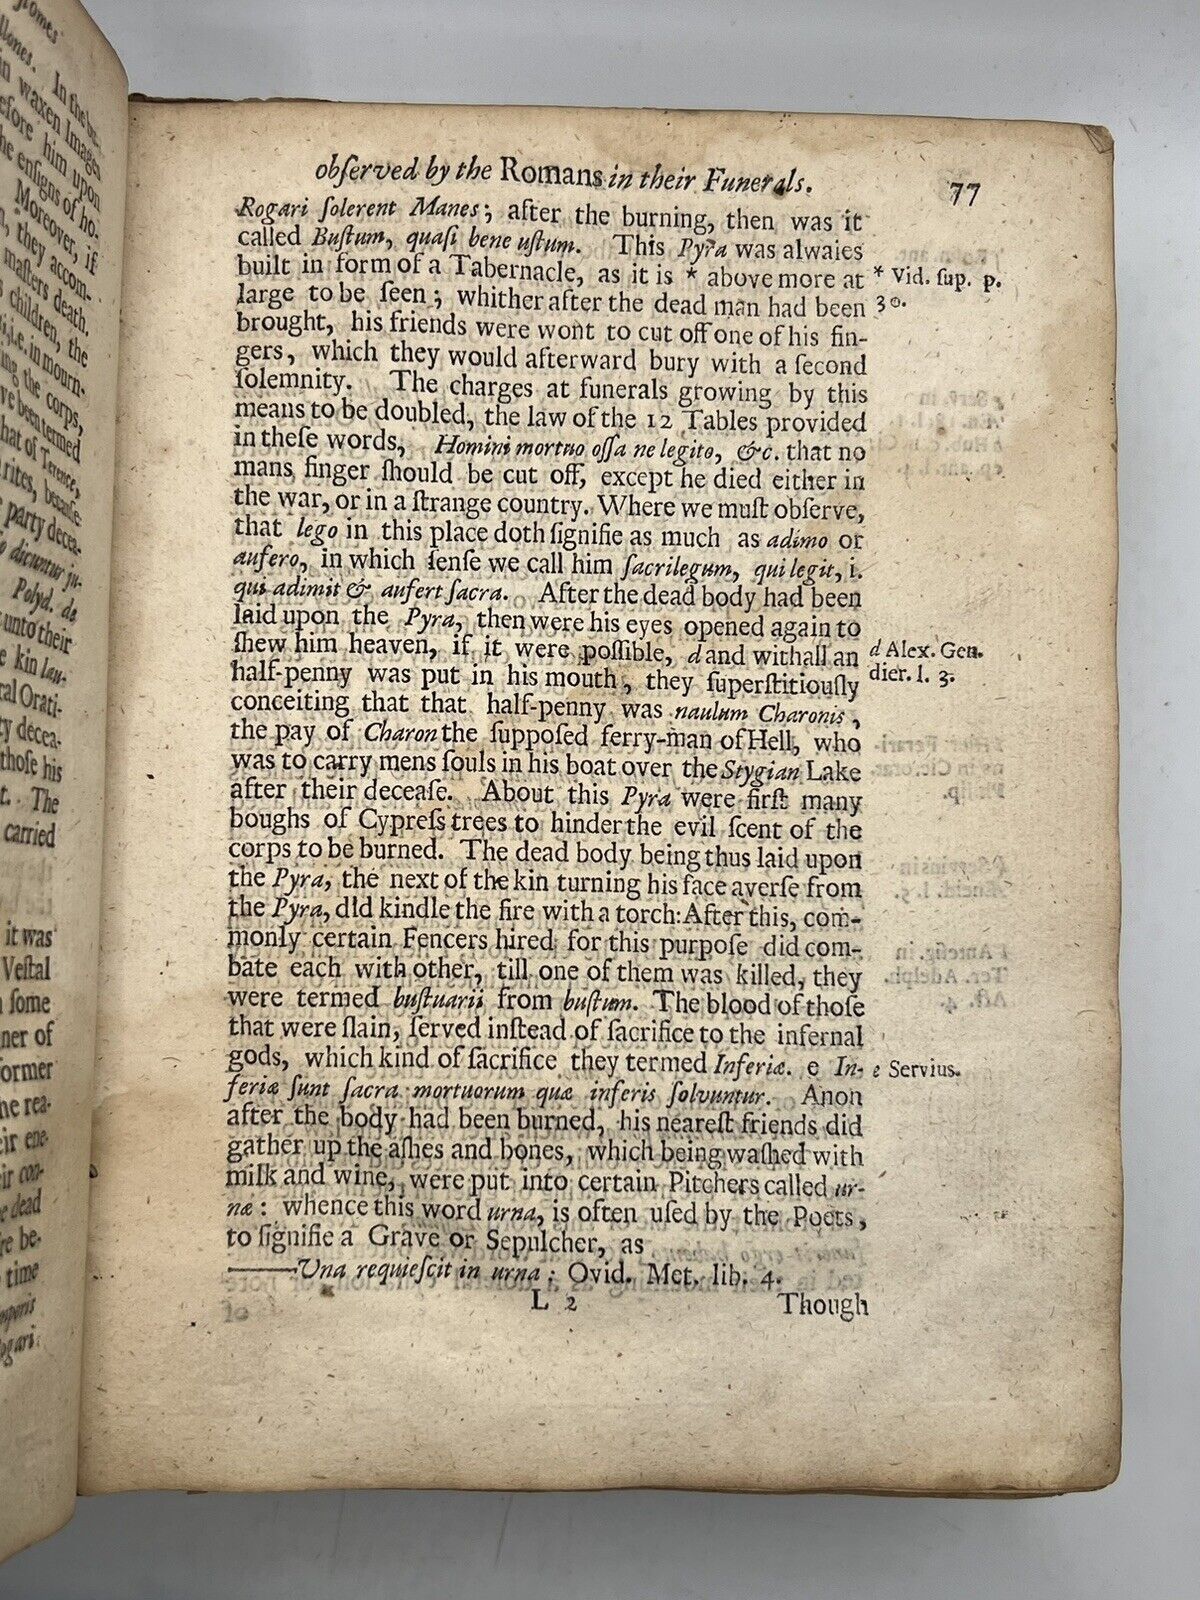 ſtomes
llones. In the bu-
in waxen Images
before him upon
he enſigns of ho-
Moreover, if
n, they accom-
maſters death.
s children, the
i.e. in mourn-
ing the corps,
ve been termed
that of Terence,
rites, becauſe
party decea-
dicuntur ju-
Polyd. de
unto their
e kin lau-
ral Orati-
ty decea-
thoſe his
t. The
carried
it was
Veſtal
ſome
ner of
former
he rea-
eir ene-
eir con-
e dead
re be-
time
mporis
ogari
obſerved by the Romans in their Funerals. 77
Rogari ſolerent Manes; after the burning, then was it
called Buſtum, quaſi bene uſtum. This Pyra was alwaies
built in form of a Tabernacle, as it is * above more at
large to be ſeen; whither after the dead man had been
brought, his friends were wont to cut off one of his fin-
gers, which they would afterward bury with a ſecond
ſolemnity. The charges at funerals growing by this
means to be doubled, the law of the 12 Tables provided
in theſe words, Homini mortuo oſſa ne legito, &c. that no
mans finger ſhould be cut off, except he died either in
the war, or in a ſtrange country. Where we muſt obſerve,
that lego in this place doth ſignifie as much as adimo or
aufero, in which ſenſe we call him ſacrilegum, qui legit, i.
qui adimit & aufert ſacra. After the dead body had been
laid upon the Pyra, then were his eyes opened again to
ſhew him heaven, if it were poſſible, d and withall an
half-penny was put in his mouth, they ſuperſtitiouſly
conceiting that that half-penny was naulum Charonis,
the pay of Charon the ſuppoſed ferry-man of Hell, who
was to carry mens ſouls in his boat over the Stygian Lake
after their deceaſe. About this Pyra were firſt many
boughs of Cypreſs trees to hinder the evil ſcent of the
corps to be burned. The dead body being thus laid upon
the Pyra, the next of the kin turning his face averſe from
the Pyra, did kindle the fire with a torch: After this, com-
monly certain Fencers hired for this purpoſe did com-
bate each with other, till one of them was killed, they
were termed buſtuarii from buſtum. The blood of thoſe
that were ſlain, ſerved inſtead of ſacrifice to the infernal
gods, which kind of ſacrifice they termed Inferiæ. e In-
feriæ ſunt ſacra mortuorum quæ inferis ſolvuntur. Anon
after the body had been burned, his neareſt friends did
gather up the aſhes and bones, which being waſhed with
milk and wine, were put into certain Pitchers called ur-
næ: whence this word urna, is often uſed by the Poets,
to ſignifie a Grave or Sepulcher, as
——Una requieſcit in urna: Ovid. Met. lib. 4.
L 2 Though
* Vid. ſup. p.
30.
d Alex. Gen.
dier. l. 3.
e Servius.